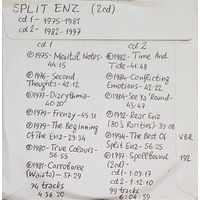 SPLIT ENZ (2cd)
cd 1- 1975-1981
cd 2- 1982-1997
cd 1
1975- Mental Notes-
44:15
1976- Second
Thoughts- 42:12
1977- Dizrythmia-
40:20
1979- Frenzy- 45:31
1979- The Beginning
Of The Enz- 29:34
1980- True Colours-
56:55
1981- Corroboree
(Waiata)- 37:29
94 tracks
4:56:20
cd 2
1982- Time And
Tide- 41:48
1984- Conflicting
Emotions- 42:22
1984- See Ya 'Round-
43:47
1992- Rear Enz
(80's Rarities)- 39:08
1994- The Best Of
Split Enz- 56:25
VBR
1997- Spellbound
(2cd)-
192
cd 1- 1:09:17
cd 2- 1:12:10
99 tracks
6:04:59